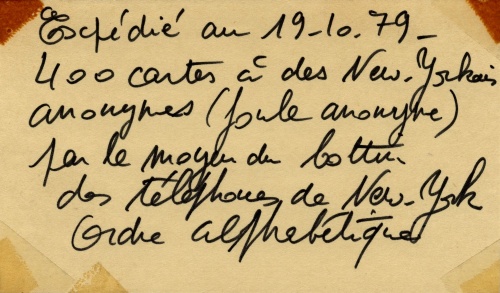 Expédié au 19-10.79-
400 cartes à des New-Yorkais
anonymes (foule anonyme)
par le moyen du bottin
des téléphones de New-York
Ordre alphabétiques